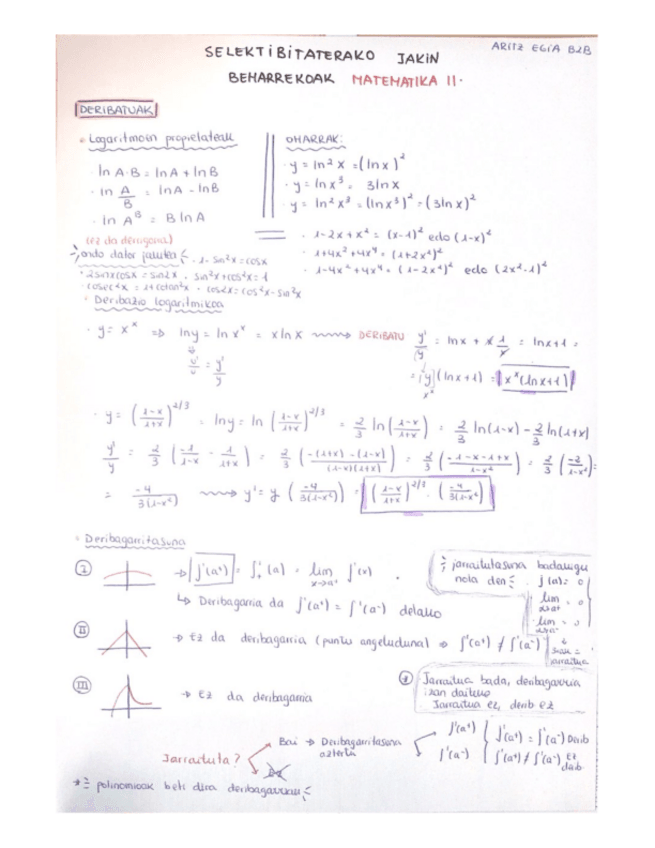 SELEKTIBITATERAKO JAKIN
ARITZ EGIA B2B
BEHARREKOAK MATEMATIKA II.
DERIBATUAK
• Logaritmoin propietateak
· ln A·B = ln A + ln B
· ln A/B = lnA - lnB
· ln A^B = B ln A
OHARRAK:
· y = ln²x = (ln x)²
· y = ln x³ = 3lnx
· y = ln²x³ = (ln x³)² = (3lnx)²
· 1-2x+x² = (x-1)² edo (1-x)²
· 1+4x²+4x⁴ = (1+2x²)²
· 1-4x²+4x⁴ = (1-2x²)² edo (2x²-1)²
(ez da derrigorra)
ondo dator jakitea
· 1-sin²x = cos²x
· 2sinxcosx = sin2x · sin²x+cos²x = 1
· cosec²x = 1+cotan²x · cos2x = cos²x-sin²x
◦ Deribazio logaritmikoa
· y = x^x ⇒ lny = ln x^x = x ln x ⟿ DERIBATU y'/y = lnx + x 1/x = lnx+1 =
u'/u = y'/y
= y (lnx+1) = x^x (lnx+1)
x^x
· y = ((1-x)/(1+x))^2/3 = lny = ln ((1-x)/(1+x))^2/3 = 2/3 ln((1-x)/(1+x)) = 2/3 ln(1-x) - 2/3 ln(1+x)
y'/y = 2/3 (-1/(1-x) - 1/(1+x)) = 2/3 ((-(1+x)-(1-x))/((1-x)(1+x))) = 2/3 ((-1-x-1+x)/(1-x²)) = 2/3 (-2/(1-x²)) =
= -4/(3(1-x²)) ⟿ y' = y (-4/(3(1-x²))) = ((1-x)/(1+x))^2/3 · (-4/(3(1-x²)))
◦ Deribagarritasuna
I → f'(a⁺) = f'₊(a) = lim x→a⁺ f'(x)
↳ Deribagarria da f'(a⁺) = f'(a⁻) delako
jarraitutasuna badaukagu
nola den f(a) = 0
lim x→a⁺ = 0
lim x→a⁻ = 0
II → Ez da deribagarria (puntu angeluduna) ⇒ f'(a⁺) ≠ f'(a⁻)
jarraitua
III → Ez da deribagarria
Jarraitua bada, deribagarria
izan daiteke
Jarraitua ez, derib ez
Jarraituta?
Bai → Deribagarritasuna
aztertu
Ez
f'(a⁺)
f'(a⁻)
f'(a⁺) = f'(a⁻) Derib
f'(a⁺) ≠ f'(a⁻) Ez
derib
* polinomioak beti dira deribagarriak